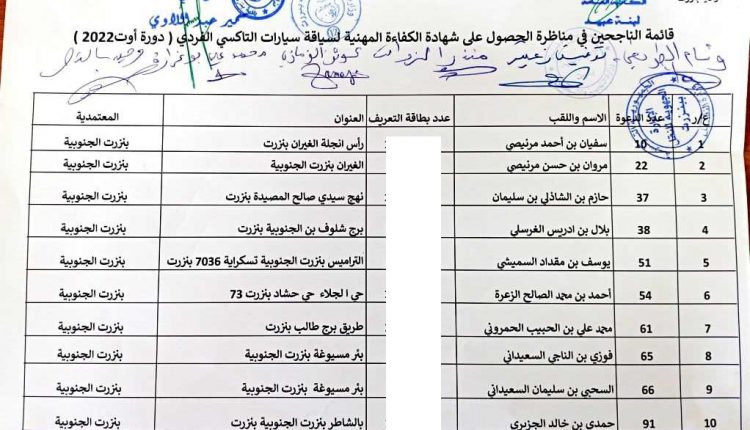 قائمة الناجحين في مناظرة الحصول على شهادة الكفاءة المهنية لسياقة سيارات التاكسي الفردي ( دورة أوت2022 )
ع/ر عدد الدعوة الاسم واللقب عدد بطاقة التعريف العنوان المعتمدية
1 10 سفيان بن أحمد مرنيصي رأس انجلة الغيران بنزرت بنزرت الجنوبية
2 22 مروان بن حسن مرنيصي الغيران بنزرت الجنوبية بنزرت الجنوبية
3 37 حازم بن الشاذلي بن سليمان نهج سيدي صالح المصيدة بنزرت بنزرت الجنوبية
4 38 بلال بن ادريس الغرسلي برج شلوف بن الجنوبية بنزرت بنزرت الجنوبية
5 51 يوسف بن مقداد السميشي التراميس بنزرت الجنوبية تسكراية 7036 بنزرت بنزرت الجنوبية
6 54 أحمد بن محمد الصالح الزعرة حي الجلاء حي حشاد بنزرت 73 بنزرت الجنوبية
7 61 محمد علي بن الحبيب الحمروني طريق برج طالب بنزرت بنزرت الجنوبية
8 65 فوزي بن الناجي السعيداني بئر مسيوغة بنزرت الجنوبية بنزرت الجنوبية
9 66 السحبي بن سليمان السعيداني بئر مسيوغة بنزرت الجنوبية بنزرت الجنوبية
10 91 حمدي بن خالد الجزيري بالشاطر بنزرت الجنوبية بنزرت بنزرت الجنوبية